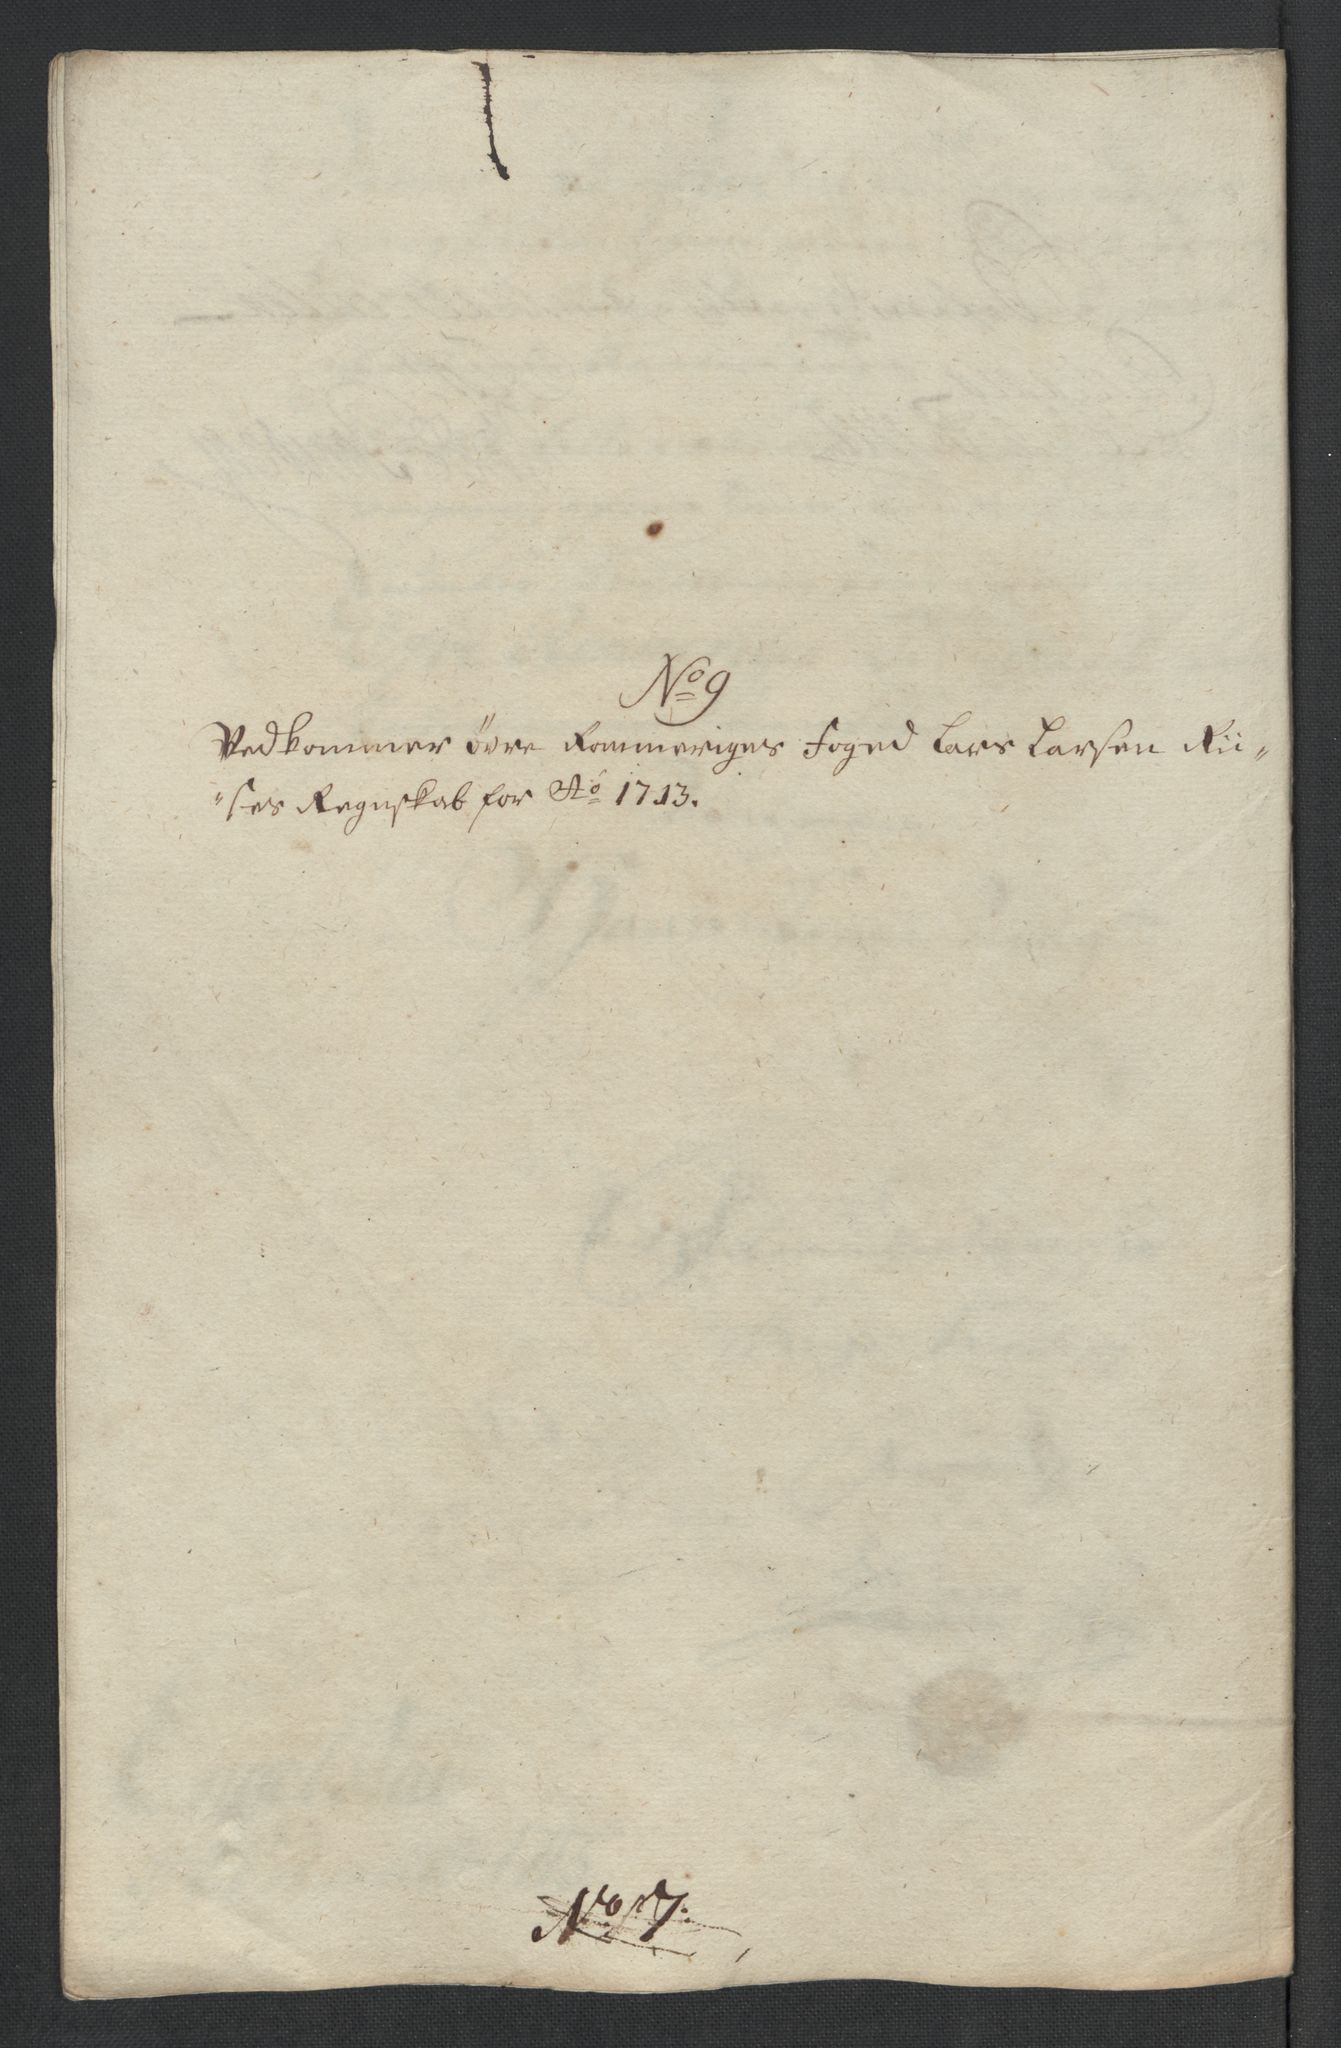 No 9
Vedkommer övre Rommeriges Foged Lars Larsen Rii-
"ses Regnskab for Ao 1713.
No 7.